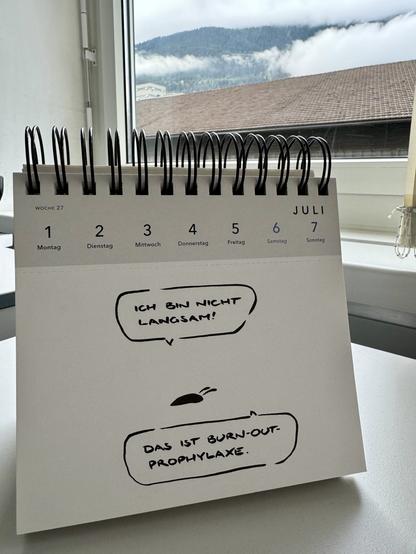 WOCHE 27
JULI
1 2 3 4 5 6 7
Montag Dienstag Mittwoch Donnerstag Freitag Samstag Sonntag
ICH BIN NICHT
LANGSAM!
DAS IST BURN-OUT-
PROPHYLAXE.